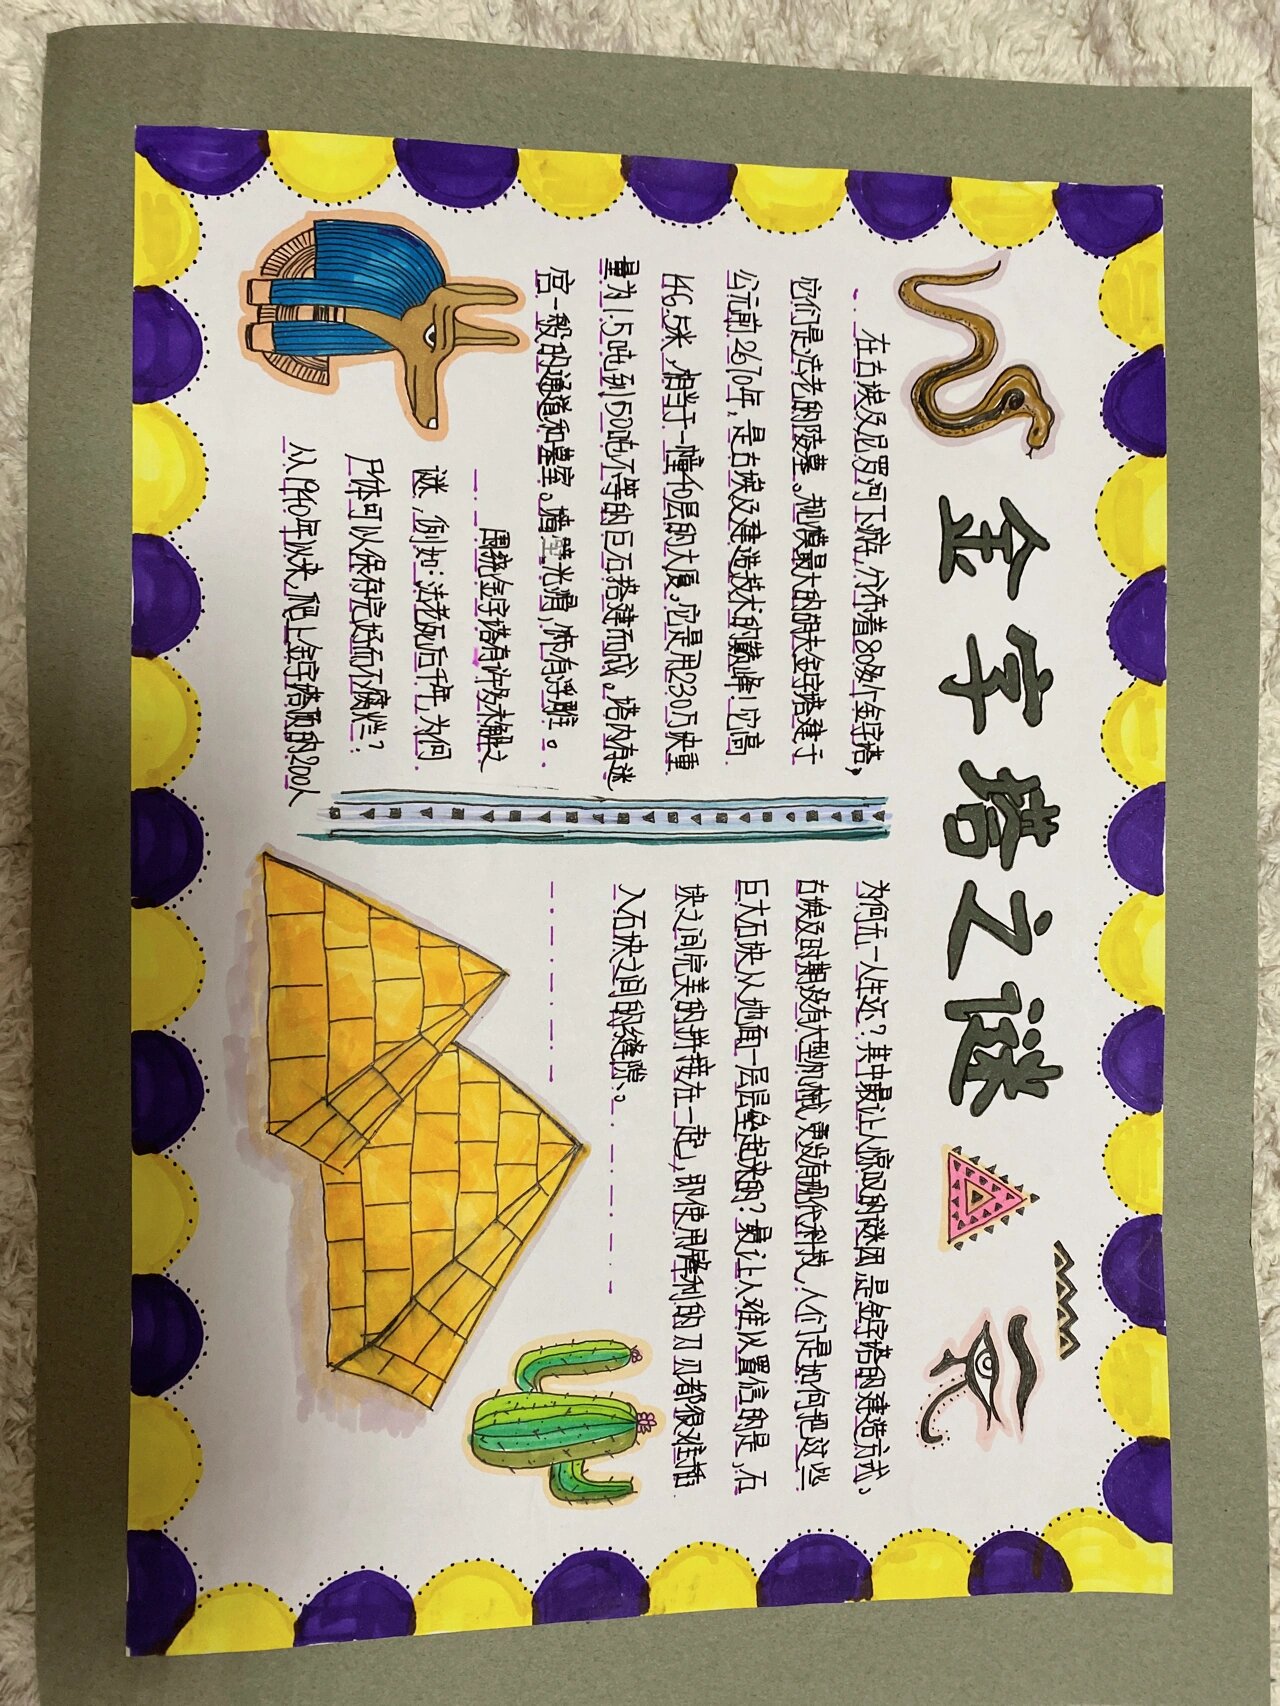 金字塔之谜
在古埃及尼罗河下游,分布着80多个金字塔,
它们是法老的陵墓。规模最大的胡夫金字塔建于
公元前2670年,是古埃及建造技术的巅峰!它高
146.5米,相当于一幢40层的大厦。它是用230万块重
量为1.5吨到150吨不等的巨石搭建而成。塔内有迷
宫一般的通道和墓室。墙壁光滑,饰有浮雕。
围绕金字塔有许多未解之
谜,例如:法老死后千年,为何
尸体可以保存完好而不腐烂?
从1940年以来,爬上金字塔顶的200人
为何无一人生还?其中最让人惊叹的谜团是金字塔的建造方式。
古埃及时期没有大型机械,更没有现代科技,人们是如何把这些
巨大石块从地面一层层垒起来的?最让人难以置信的是,石
块之间完美的拼接在一起,即使用犀利的刀刃都很难插
入石块之间的缝隙。